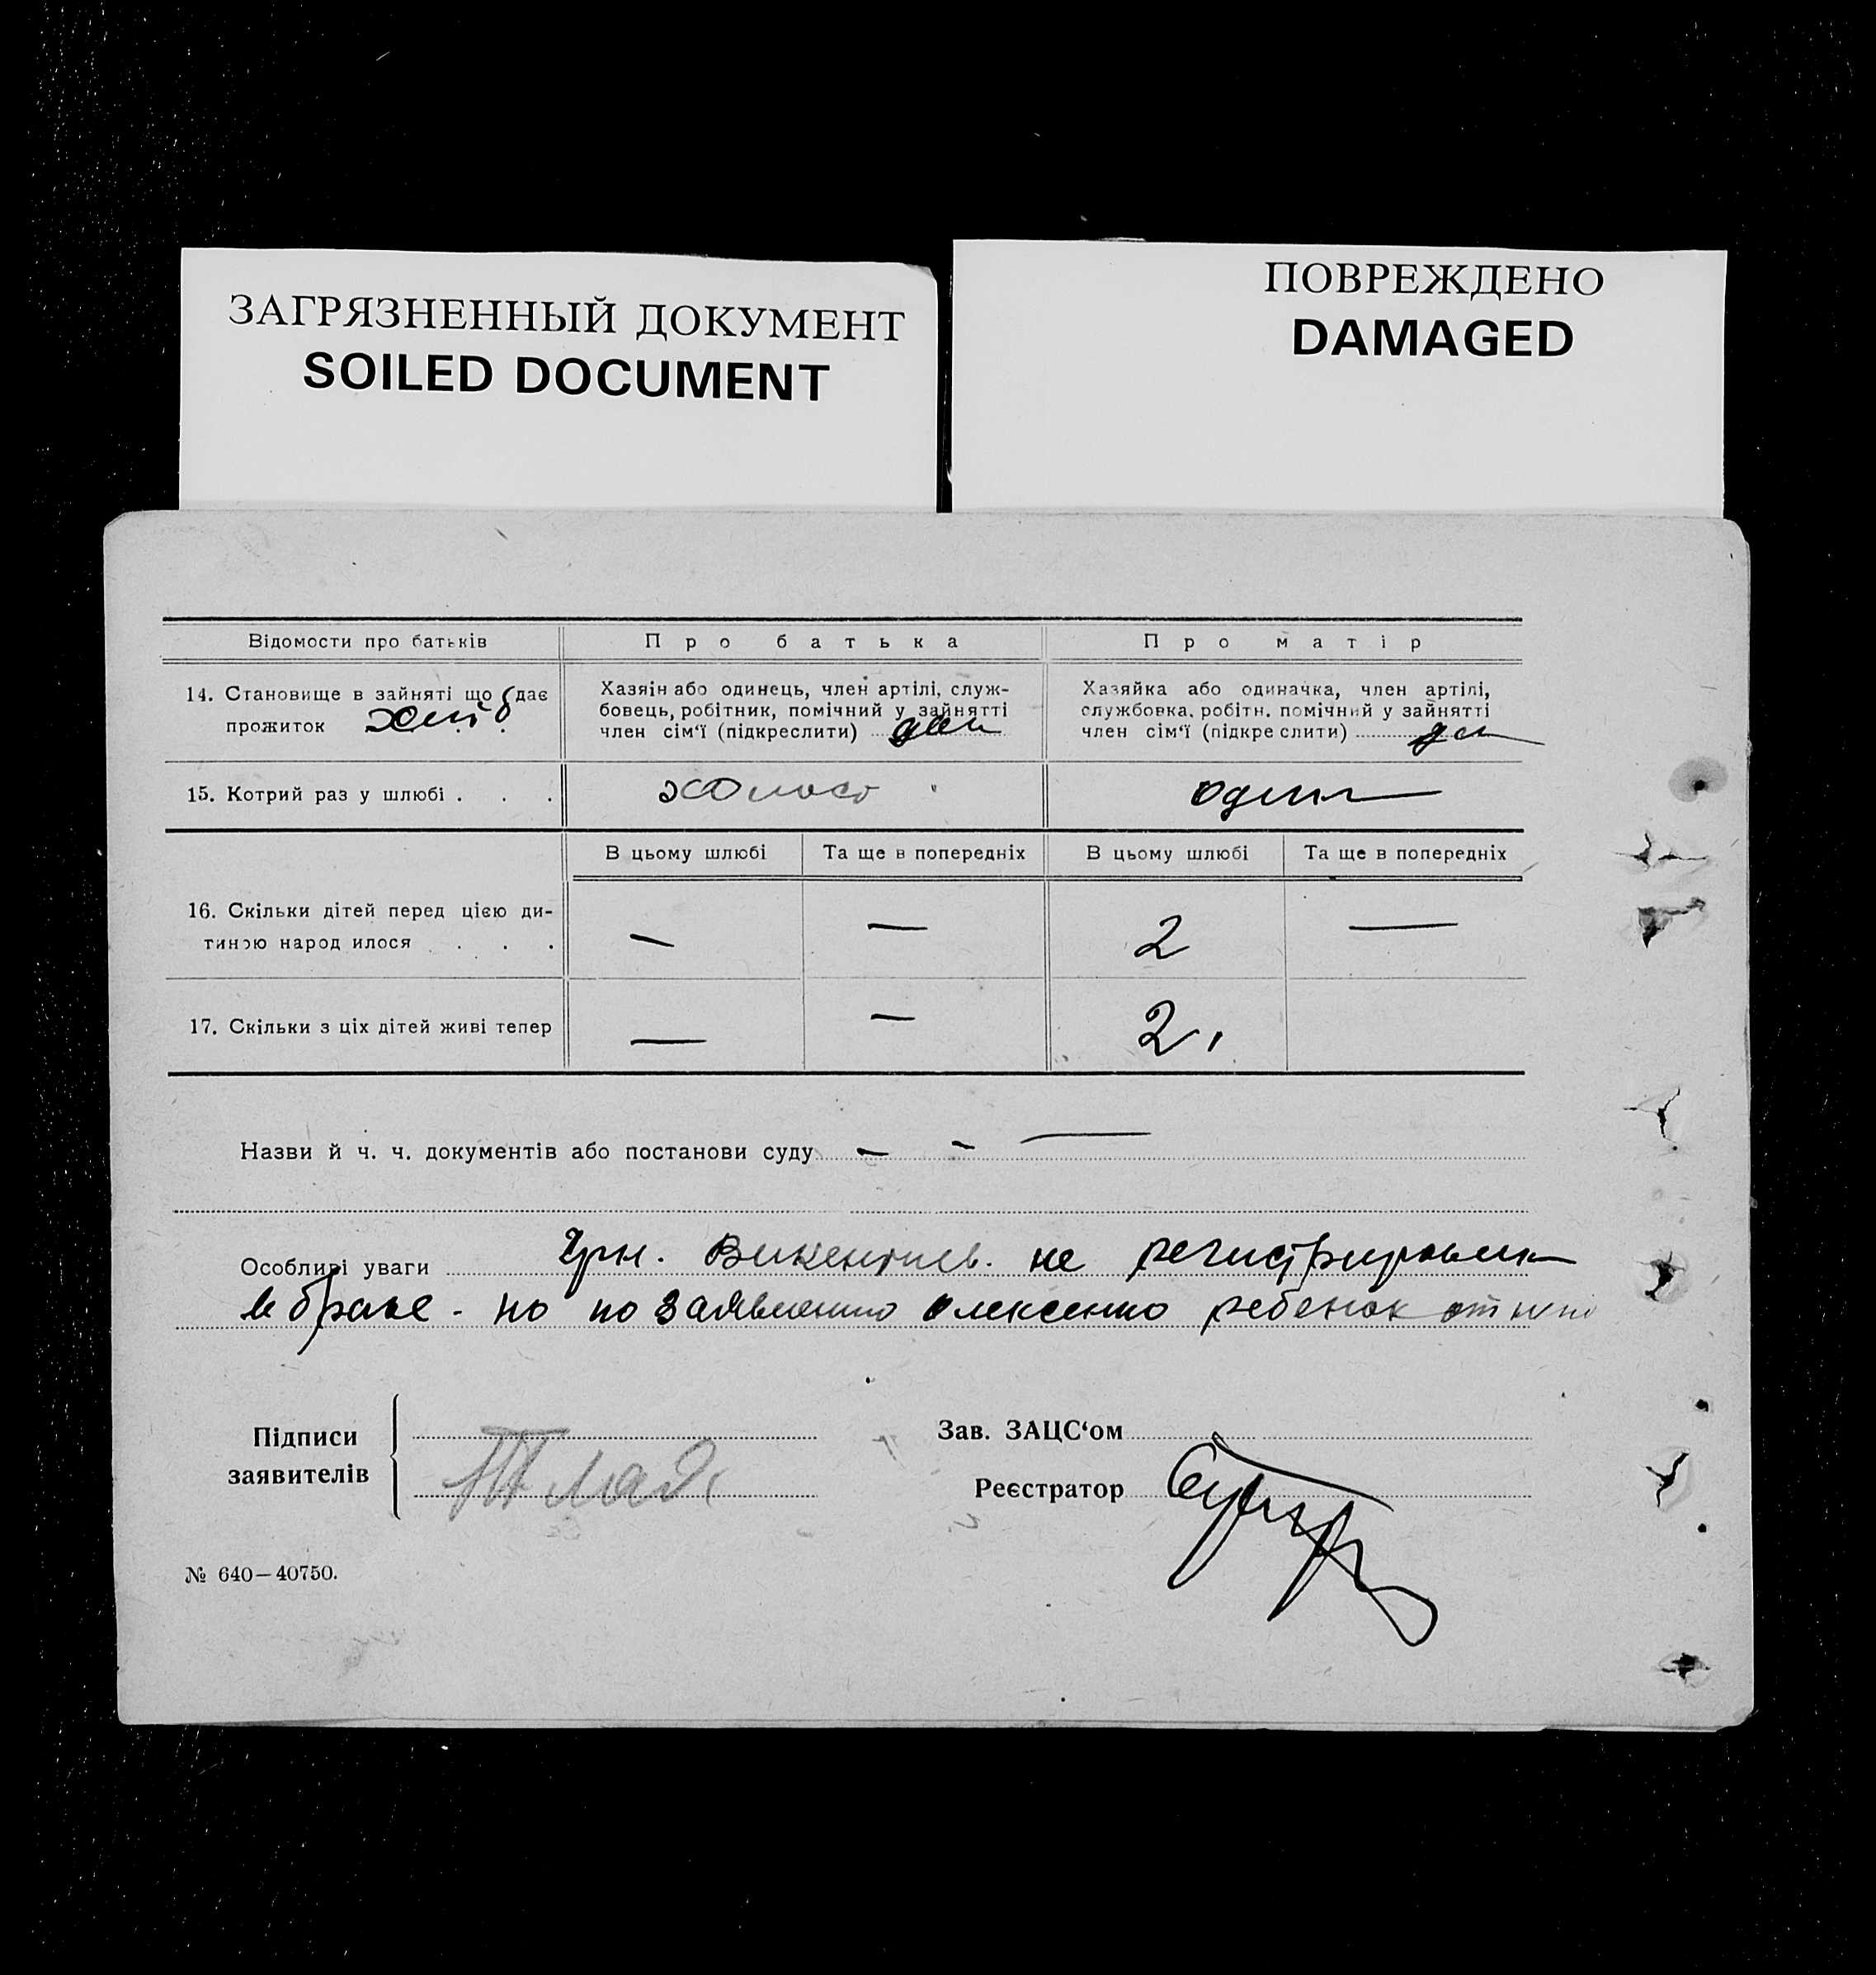 ЗАГРЯЗНЕННЫЙ ДОКУМЕНТ
SOILED DOCUMENT
ПОВРЕЖДЕНО
DAMAGED
Відомости про батьків
Про батька
Про матір
14. Становище в зайняті що дає
прожиток
Хазяін або одинець, член артілі, служ-
бовець, робітник, помічний у зайнятті
член сім'ї (підкреслити)
Хазяйка або одиначка, член артілі,
службовка, робітн. помічний у зайнятті
член сім'ї (підкреслити)
15. Котрий раз у шлюбі . . .
один
В цьому шлюбі
Та ще в попередніх
В цьому шлюбі
Та ще в попередніх
16. Скільки дітей перед цією ди-
тиною народилося . . .
— — 2 —
17. Скільки з ціх дітей живі тепер
— — 2
Назви й ч. ч. документів або постанови суду — - —
Особливі уваги не
в браке - но по заявлению Олексенко ребенок от
Підписи
заявителів
Зав. ЗАЦС'ом
Реєстратор
№ 640—40750.